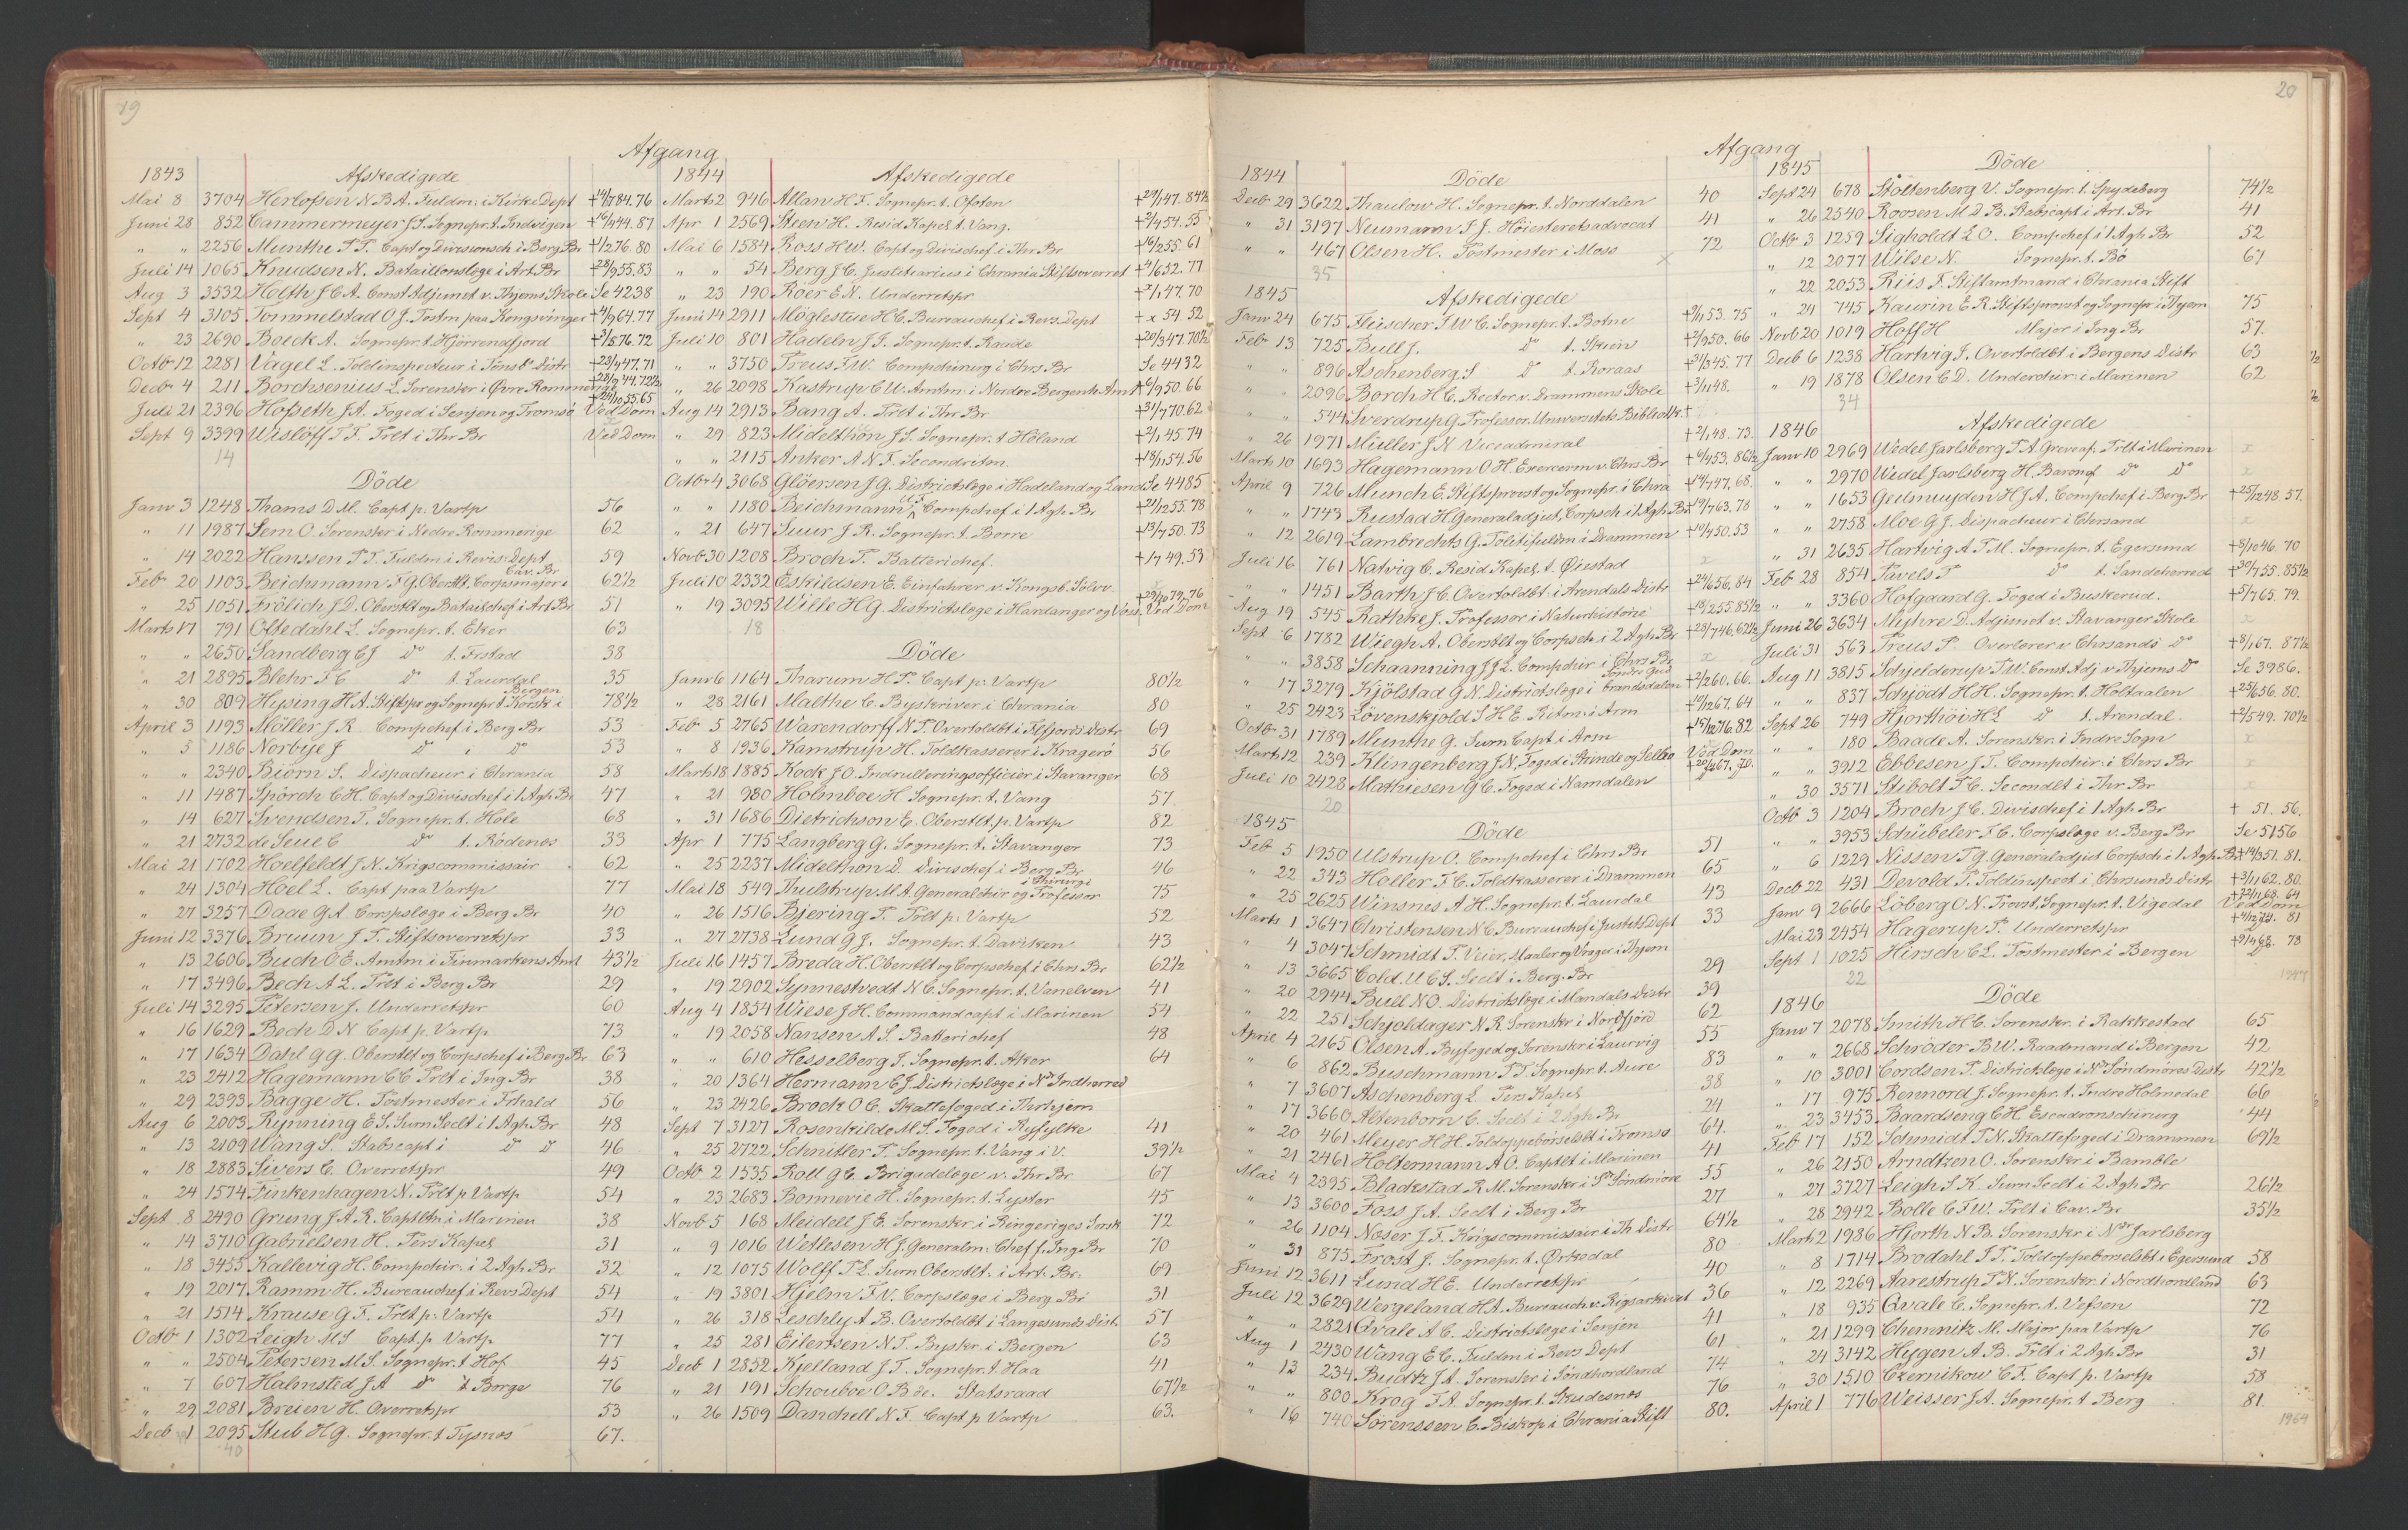 19
Afgang
1843 Afskedigede
Mai 8 3704 Herlofsen N B A. Fuldm: i Kirke Dept +14/7 84. 76
Juni 28 852 Cammermeyer J S. Sognepr. t. Indvigen +16/4 44. 87
" " 2256 Munthe P P. Capt og Divisionsch. i Berg Br +1/2 76. 80
Juli 14 1065 Knudsen N. Bataillonslæge i Art. Br +28/9 55. 83
Aug 3 3532 Holth J C A. Const Adjunct v. Thjems Skole Se 4238
Sept 4 3105 Tommelstad O J. Postm paa Kongsvinger +4/9 64. 77
" 23 2690 Boeck A. Sognepr. t. Hjörrendfjord +3/5 76. 72
Octbr 12 2281 Vagel L. Toldinspecteur i Tönsb. Distr +23/9 47. 71
Decbr 4 211 Borchsenius L Sorenskr i Øvre Rommerige +28/9 44. 72½
Juli 21 2396 Hofseth J A. Foged i Senjen og Tromsö +24/10 55. 65 Ved Dom
Sept 9 3399 Wislöff P F. Prlt i Thr Br Ved Dom
14
Döde
Janr 3 1248 Thams D M. Capt p. Vartp 56
" 11 1987 Sem O. Sorenskr i Nedre Rommerige 62
" 14 2022 Hanssen P T. Fuldm i Revis: Dept 59
Feb 20 1103 Beichmann F G. Oberstlt. Corpsmajor i Cav. Br. 62½
" 25 1051 Frölich J D. Oberstlt og Bataischef i Art Br 51
Marts 17 791 Oftedahl L. Sognepr. t. Eker 63
" " 2650 Sandberg C J do t. Fistad 38
" 21 2895 Blehr F C do t. Laurdal 35
" 30 809 Hysing H A. Stiftspr og Sognepr t. Korsk i Bergen 78½
April 3 1193 Möller J R. Compchef i Berg Br 53
" 5 1186 Norbye J do i do 53
" " 2340 Biörn S. Dispacheur i Chrania 58
" 11 1487 Spörch C H. Capt og Divischef i 1 Agh Br 47
" 14 627 Svendsen T. Sognepr. t. Hole 68
" 21 2732 de Seue C do t. Rödenæs 33
Mai 21 1702 Hoelfeldt J N. Krigscommissair 62
" 24 1304 Hoel L. Capt paa Vartp 77
" 27 3257 Daae G A Corpslæge i Berg Br 40
Juni 12 3376 Bruun J T. Stiftsoverretspr 33
" 13 2606 Buch O E. Amtm i Finmarkens Amt 43½
" 17 3496 Bech A L. Prlt i Berg Br 29
Juli 14 3295 Petersen J. Underretspr 60
" 16 1629 Bech D N Capt p. Vartp 73
" 17 1634 Dahl G G. Oberstlt og Corpschef i Berg Br 63
" 23 2412 Hagemann C C Prlt i Ing Br 38
" 29 2393 Bagge H. Postmester i Frhald 56
Aug 6 2003 Rynning E S. Surn Seclt i 1 Agh Br 48
" 13 2109 Wang S. Stabscapt i do do 46
" 18 2883 Sivers C. Overretspr 49
" 24 1574 Finkenhagen N. Prlt p Vartp 54
Sept 8 2490 Grung J A R. Captltn i Marinen 38
" 14 3710 Gabrielsen H. Pers Kapel 31
" 18 3455 Kallevig H. Compchir: i 2 Agh Br 32
" 19 2017 Ramm H. Bureauchef i Revs Dept 54
" 21 1514 Krause G F. Prlt p. Vartp 54
Octb 1 1302 Leigh M S Capt. p. Vartp 77
" " 2504 Petersen M S. Sognepr. t Hof 45
" 7 607 Halmsted J A do t Borge 76
" 29 2081 Breien H. Overretspr 53
Decb 1 2095 Stub H G. Sognepr. t Tysnæs 67.
40
1844 Afskedigede
Marts 2 946 Allan H F. Sognepr. t. Ofoten +29/1 47. 84½
Apr 1 2569 Steen H. Resid Kapel t. Vang. +2/4 54. 55
Mai 6 1584 Ross H W. Capt og Divischef i Thr. Br +14/2 55. 61
" " 54 Berg J C. Justitiarius i Chrania Stiftsoverret +4/6 52. 77
" 23 190 Röer E N. Underretspr +2/1 47. 70
Juni 14 2911 Möglestue H C. Bureauchef i Revs. Dept +x 54 52
Juli 10 801 Hadeln J J. Sognepr. t. Raade +20/3 47. 70½
" " 3750 Preus F W. Compchirurg i Chrs Br Se 4432
" 26 2098 Kastrup C W. Amtm i Nordre Bergenh Amt +6/9 50. 66
Aug 14 2913 Bang A. Prlt i Thr Br +31/7 70. 62
" 29 823 Midelthon J S. Sognepr. t Höland +2/1 45. 74
" " 2115 Anker A N F. Secondritm. +18/11 54. 56
Octbr 4 3068 Glöersen J G. Districtslæge i Hadeland og Land Se 4485
" " 1180 Beichmann U F. Compchef i 1 Agh Br +21/12 55. 78
" 21 647 Suur J R. Sognepr. t. Borre +13/4 50. 73
Novb 30 1208 Broch P. Batterichef. +1/7 49. 53
Juli 10 2332 Eskildsen E. Einfahrer v. Kongsb. Sölvv. x
" 19 3095 Wille H G. Districtslæge i Hardanger og Voss +29/10 79. 76 Ved Dom
18
Döde
Janr 6 1164 Tharum H P. Capt p: Vartp 80½
" 28 2161 Malthe C. Byskriver i Chrania 80
Feb 5 2765 Warendorff N P. Overtoldbt i Flefjords Distr 69
" 8 1936 Kamstrup H. Toldkasserer i Kragerö 56
Marts 18 1885 Kock J O. Indrulleringsofficier i Stavanger 68
" 21 930 Holmboe H. Sognepr. t. Vang 57
" 31 1686 Dietrichson E. Oberstlt. p. Vartp 82
Apr 1 775 Langberg G. Sognepr. t. Stavanger 73
" 25 2237 Midelthon D. Divischef i Berg Br 46
Mai 18 549 Thulstrup M A. Generalchir og Professor i Chirurgi 75
" 26 1516 Bjering P. Prlt p: Vartp 52
" 27 2738 Lund G J. Sognepr. t. Daviken 43
Juli 16 1457 Breda H. Oberstlt og Corpschef i Chrs Br 62½
" 19 2902 Synnestvedt N C. Sognepr. t. Vanelven 41
Aug 4 1854 Wiese J H. Commandcapt i Marinen 54
" 19 2058 Nansen A S. Batterichef 48
" " 610 Hesselberg I. Sognepr. t. Aker 64
" 20 1364 Hermann C J. Districtslæge i Nr Indherred
" 23 2426 Brock O C. Skattefoged i Thrhjem
Sept 7 3127 Rosenkilde M S. Foged i Ryfylke 41
" 25 2722 Schnitler P. Sognepr. t. Vang i V. 39½
Octb 2 1535 Roll G C. Brigadelæge v. Thr Br. 67
" 23 2683 Bonnevie H. Sognepr. t. Lyster 45
Novb 5 168 Meidell J E. Sorenskr. i Ringeriges Sorsk 72
" 9 1016 Wetlesen H J. Generalm: Chef f. Ing Br 70
" 12 1075 Wolff P L. Surn Oberstlt: i Art. Br. 69
" 19 3801 Hjelm F V. Corpslæge i Berg Br 31
" 26 318 Leschly A B. Overtoldbt i Langesunds Distr 57
" 25 281 Eilertsen N T. Byskr. i Bergen 63
Decb 1 2852 Kjelland J T. Sognepr. t Haa 41
" 21 191 Schouboe O B de. Statsraad 67½
" 26 1509 Danchell N F. Capt p Vartp 63.
20
Afgang
1844 Döde
Decb 29 3622 Thaulow H. Sognepr. t. Norddalen 40
" 31 3197 Neumann J J. Höiesteretsadvocat 41
" 467 Olsen H. Postmester i Moss 72
35
1845 Afskedigede
Janr 24 675 Fleischer J W C. Sognepr. t. Botne +9/11 53. 75
Feb 13 725 Bull J. do t. Skien +2/9 50. 66
" " 896 Aschenberg S do t. Roraas +31/3 45. 77
" 2096 Borch H C. Rector v. Drammens Skole +3/11 48.
" " 544 Sverdrup G. Professor. Universitets Bibliothk. +
" 26 1971 Müller J N Viceadmiral +2/1 48. 73.
Marts 10 1693 Hagemann O H. Exercerm v. Chrs. Br +6/4 53. 86½
April 9 726 Munch E. Stiftsprovst og Sognepr. i Chra +14/7 47. 68.
" " 1743 Rustad H. Generaladjut, Corpsch. i 1 Agh Br +19/7 63. 78
" 12 2619 Lambrechts G. Politifuldm i Drammen +10/4 50. 53
Juli 16 761 Natvig C. Resid Kapel. t. Øiestad x
" 1451 Barth J C. Overtoldbt. i Arendals Distr +24/6 56. 84
Aug 19 545 Rathke J. Professor i Naturhistorie +18/2 55. 85½
Sept 6 1782 Wiegh A. Oberstlt og Corpsch i 2 Agh Br +28/7 46. 62½
" " 3858 Schaanning J J L. Compchir i Chrs Br x
" 17 3279 Kjölstad G N. Districtslæge i Söndre Gudbrandsdalen +2/2 60. 66.
" 25 2423 Lövenskjold S H E. Ritm: i Arm +19/12 67. 64
Octb 31 1789 Munthe G. Surn Capt i Arm +15/12 76. 82
Marts 12 239 Klingenberg J N. Foged i Strinde og Selbo Ved Dom
Juli 10 2428 Mathiesen G C. Foged i Namdalen +20/4 67. 70. do
20
1845 Döde
Feb 5 1950 Ulstrup O. Compchef i Chrs Br 51
" 22 343 Holler F C. Toldkasserer i Drammen 65
" 25 2625 Winsnes A H. Sognepr. t. Laurdal 43
Marts 1 3647 Christensen N C. Bureauchef i Justits Dept 33
" 4 3047 Schmidt P. Veier, Maaler og Vrager i Thjem
" 13 3665 Cold. U C S. Seclt i Berg. Br 29
" 20 2944 Bull N O. Districtslæge i Mandals Distr 39
" 22 251 Schjoldager N R Sorenskr i Nordfjord 62
April 4 2165 Olsen A. Byfoged og Sorenskr i Laurvig 55
" 6 862 Buschmann P T Sognepr. t. Aure 83
" 7 3607 Aschenberg L Pers Kapel 38
" 17 3660 Altenborn C. Seclt i 2 Agh Br 24
" 20 461 Meyer H H. Toldoppebörselsbt i Tromsö 64.
" 21 2461 Holtermann A O. Captlt i Marinen 41
Mai 4 2395 Blackstad R M. Sorenskr i Sr Söndmöre 55
" 13 3600 Foss J A. Seclt i Berg Br 27
" 26 1104 Næser J F. Krigscommissair i Th Distr 64½
" 31 875 Frost J. Sognepr. t. Ørkedal 80
Juni 12 3611 Lund H E. Underretspr 40
Juli 12 3629 Wergeland H A. Bureauch v. Rigsarkivet 36
" " 2821 Qvale A C. Districtslæge i Senjen 41
Aug 1 2430 Wang E C. Fuldm i Revs Dept 61
" 13 234 Budtz J A. Sorenskr i Söndhordland 74
" " 800 Krog F A. Sognepr. t. Skudesnæs 76
" 16 740 Sörenssen C. Biskop i Chrania Stift 80.
1845 Döde
Sept 24 678 Stoltenberg V. Sognepr. t. Spydeberg 74½
" 26 2540 Roosen M D B. Stabscapt i Art Br 41
Octb 3 1259 Sigholdt L O. Compchef i 1 Agh Br 52
" 12 2077 Wilse N. Sognepr. t. Bö 61
" 22 2053 Riis F. Stiftamtmand i Chrania Stift
" 24 745 Kaurin E R. Stiftsprovst og Sognepr i Thjem 75
Novb 20 1019 Hoff H Major i Ing Br 57.
Decb 6 1238 Hartvig J. Overtoldbt i Bergens Distr 63
" 19 1878 Olsen C D. Underchir: i Marinen 62
34
1846 Afskedigede
Janr 10 2969 Wedel Jarlsberg F A Greve af. Prlt i Marinen x
" " 2970 Wedel Jarlsberg H. Baron af do do x
" " 1653 Geelmuyden H J A. Compchef i Berg Br +25/12 48. 57.
" " 2758 Moe G J. Dispacheur i Chrsand x
" 31 2635 Hartvig A T M. Sognepr. t. Egersund +8/10 46. 70
Feb 28 854 Pavels P do t. Sandeherred +30/7 55. 85½
" " 3360 Hofgaard G. Foged i Buskerud. +5/7 65. 79.
Juni 26 3634 Myhre D. Adjunct v. Stavanger Skole x
Juli 31 563 Preus P. Overlærer v Chrsands do +8/1 67. 87½
Aug 11 3815 Schjelderup P W. Const. Adj v Thjems do Se 3986.
" " 837 Schjödt H H. Sognepr. t. Holtaalen +25/6 56. 80.
Sept 26 749 Hjorthöi H L do t. Arendal. +2/5 49. 70½
" " 180 Baade A. Sorenskr. i Indre Sogn x
" " 3912 Ebbesen J T. Compchir: i Chrs Br x
" 30 3571 Stibolt P C. Secondlt i Thr Br x
Octb 3 1204 Broch J C. Divischef i 1 Agh Br + 51. 56.
" " 3953 Schübeler F C. Corpslæge v. Berg Br Se 5156
" 6 1229 Nissen P G. Generaladjut Corpsch i 1 Agh Br +14/9 51. 81.
Decb 22 431 Devold P. Toldinspect i Chrsunds Distr +3/11 62. 80.
Janr 9 2666 Löberg O N. Provst, Sognepr. t. Vigedal +22/1 68. 64 Ved Dom
Mai 23 2454 Hagerup P. Underretspr +4/12 74. 81 do
Sept 1 1025 Hirsch C L. Postmester i Bergen +9/4 68. 78 do
22
1846 Döde
Janr 7 2078 Smith H C. Sorenskr. i Rakkestad 65
" " 2668 Schröder B W. Raadmand i Bergen 42
" 10 3001 Cordsen P. Districtslæge i Nr Söndmöres Distr 42½
" 17 975 Rennord J. Sognepr. t. Indre Holmedal 66
" 23 3453 Baardseng C H. Escadronschirurg 44
Feb 17 152 Schmidt P N. Skattefoged i Drammen 69½
" 26 2150 Arndtzen O. Sorenskr i Bamble
" 27 3727 Leigh S K. Surn Seclt i 2 Agh Br 26½
" 28 2942 Bolle C F W. Prlt i Cav. Br 35½
Marts 2 1986 Hjorth N B. Sorenskr i Nr Jarlsberg
" 8 1714 Brodahl P T. Toldoppebörselsbt i Egersund 58
" 12 2269 Aarestrup P N. Sorenskr. i Nordhordland 63
" 18 935 Qvale C. Sognepr. t. Vefsen 72
" 21 1299 Chemnitz M. Major paa Vartp 76
" 24 3142 Hygen A B. Prlt i 2 Agh Br 31
" 30 1510 Czernikow C F. Capt. p. Vartp 58
April 1 776 Weisser J A. Sognepr. t Berg 81
1964